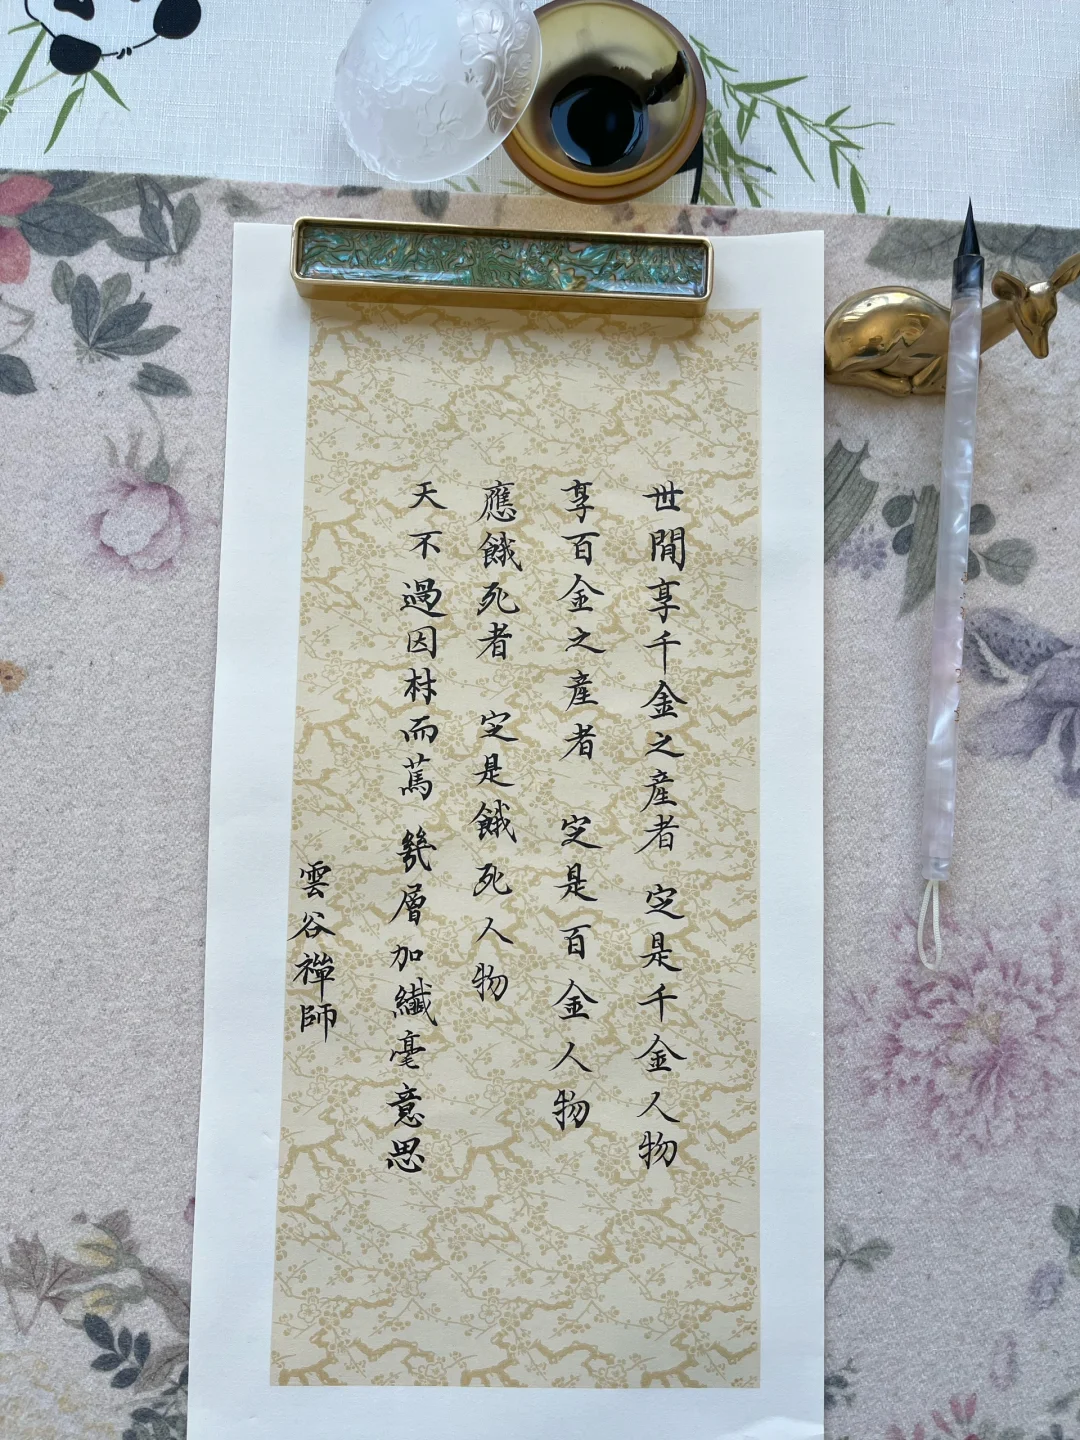 世間享千金之產者 定是千金人物
享百金之產者 定是百金人物
應餓死者 定是餓死人物
天不過因材而篤 幾層加纖毫意思
雲谷禪師